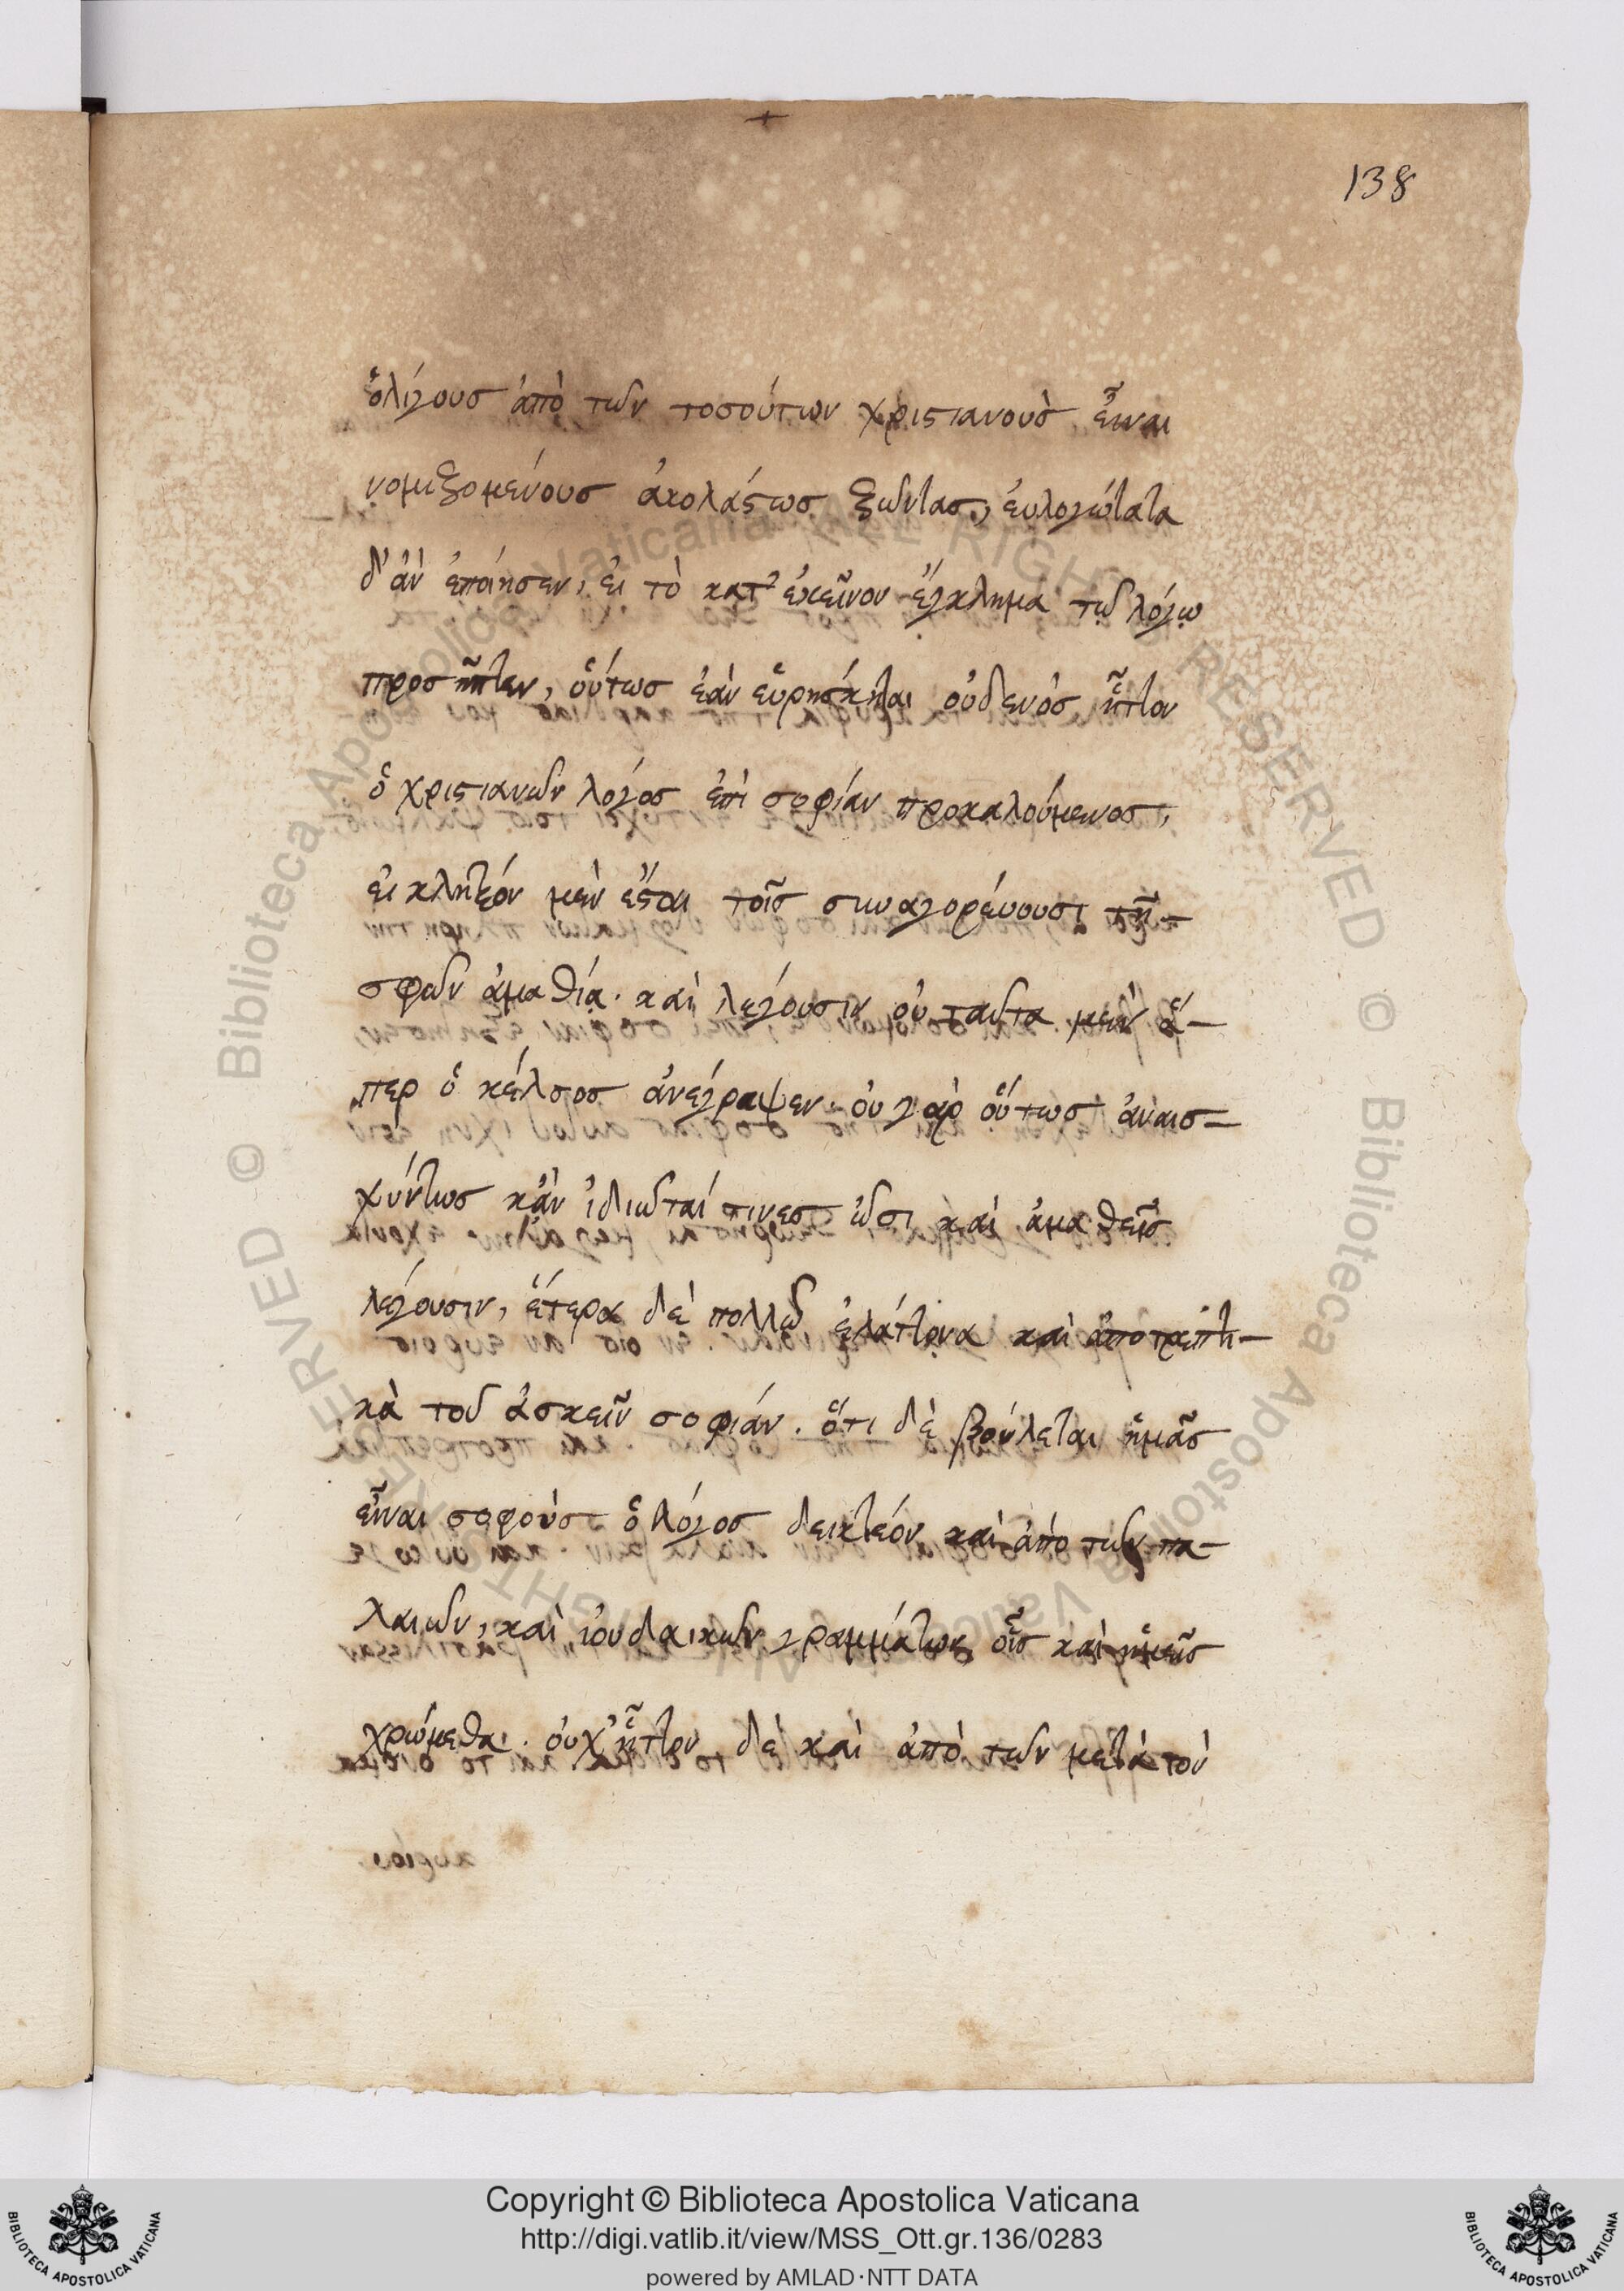 138
ὀλίγουσ ἀπὸ τῶν τοσούτων χριστιανοὺσ εἶναι
νομιζομένουσ ἀκολάστωσ ζῶντασ, εὐλογώτατα
δ' ἂν ἐποίησεν, εἰ τὸ κατ' ἐκεῖνον ἔγκλημα τῷ λόγῳ
προσῆπτεν, οὕτωσ ἐὰν εὑρίσκηται οὐδενὸσ ἧττον
ὁ χριστιανῶν λόγοσ ἐπὶ σοφίαν προκαλούμενοσ,
εἰ κλητέον μὲν ἔσται τοῖσ συναγορεύουσι τῇ
σφῶν ἀμαθίᾳ. καὶ λέγουσιν οὐ ταῦτα μὲν ἅ-
περ ὁ κέλσοσ ἀνέγραψεν. οὐ γὰρ οὕτωσ ἀναισ-
χύντωσ κἂν ἰδιῶταί τινεσ ὦσι καὶ ἀμαθεῖσ
λέγουσιν, ἕτερα δὲ πολλῷ ἐλάττονα καὶ ἀποτρεπτι-
κὰ τοῦ ἀσκεῖν σοφίαν. ὅτι δὲ βούλεται ἡμᾶσ
εἶναι σοφοὺσ ὁ λόγοσ δεικτέον καὶ ἀπὸ τῶν πα-
λαιῶν, καὶ ἰουδαικῶν γραμμάτων, οἷσ καὶ ἡμεῖσ
χρώμεθα. οὐχ' ἧττον δὲ καὶ ἀπὸ τῶν μετὰ τὸν
Copyright © Biblioteca Apostolica Vaticana
http://digi.vatlib.it/view/MSS_Ott.gr.136/0283
powered by AMLAD·NTT DATA
BIBLIOTECA APOSTOLICA VATICANA
BIBLIOTECA APOSTOLICA VATICANA